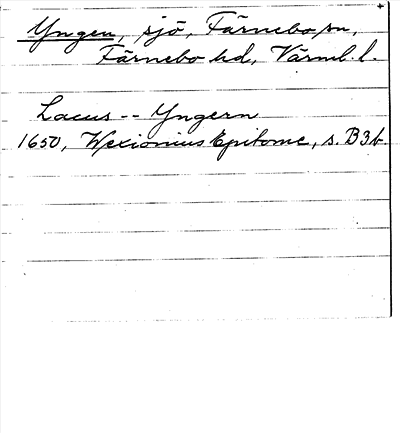 Yngen, sjö, Färnebo sn,
Färnebo hd, Värml. l.
Lacus -- Yngern
1650, Wexionius Epitome, s. B3b.